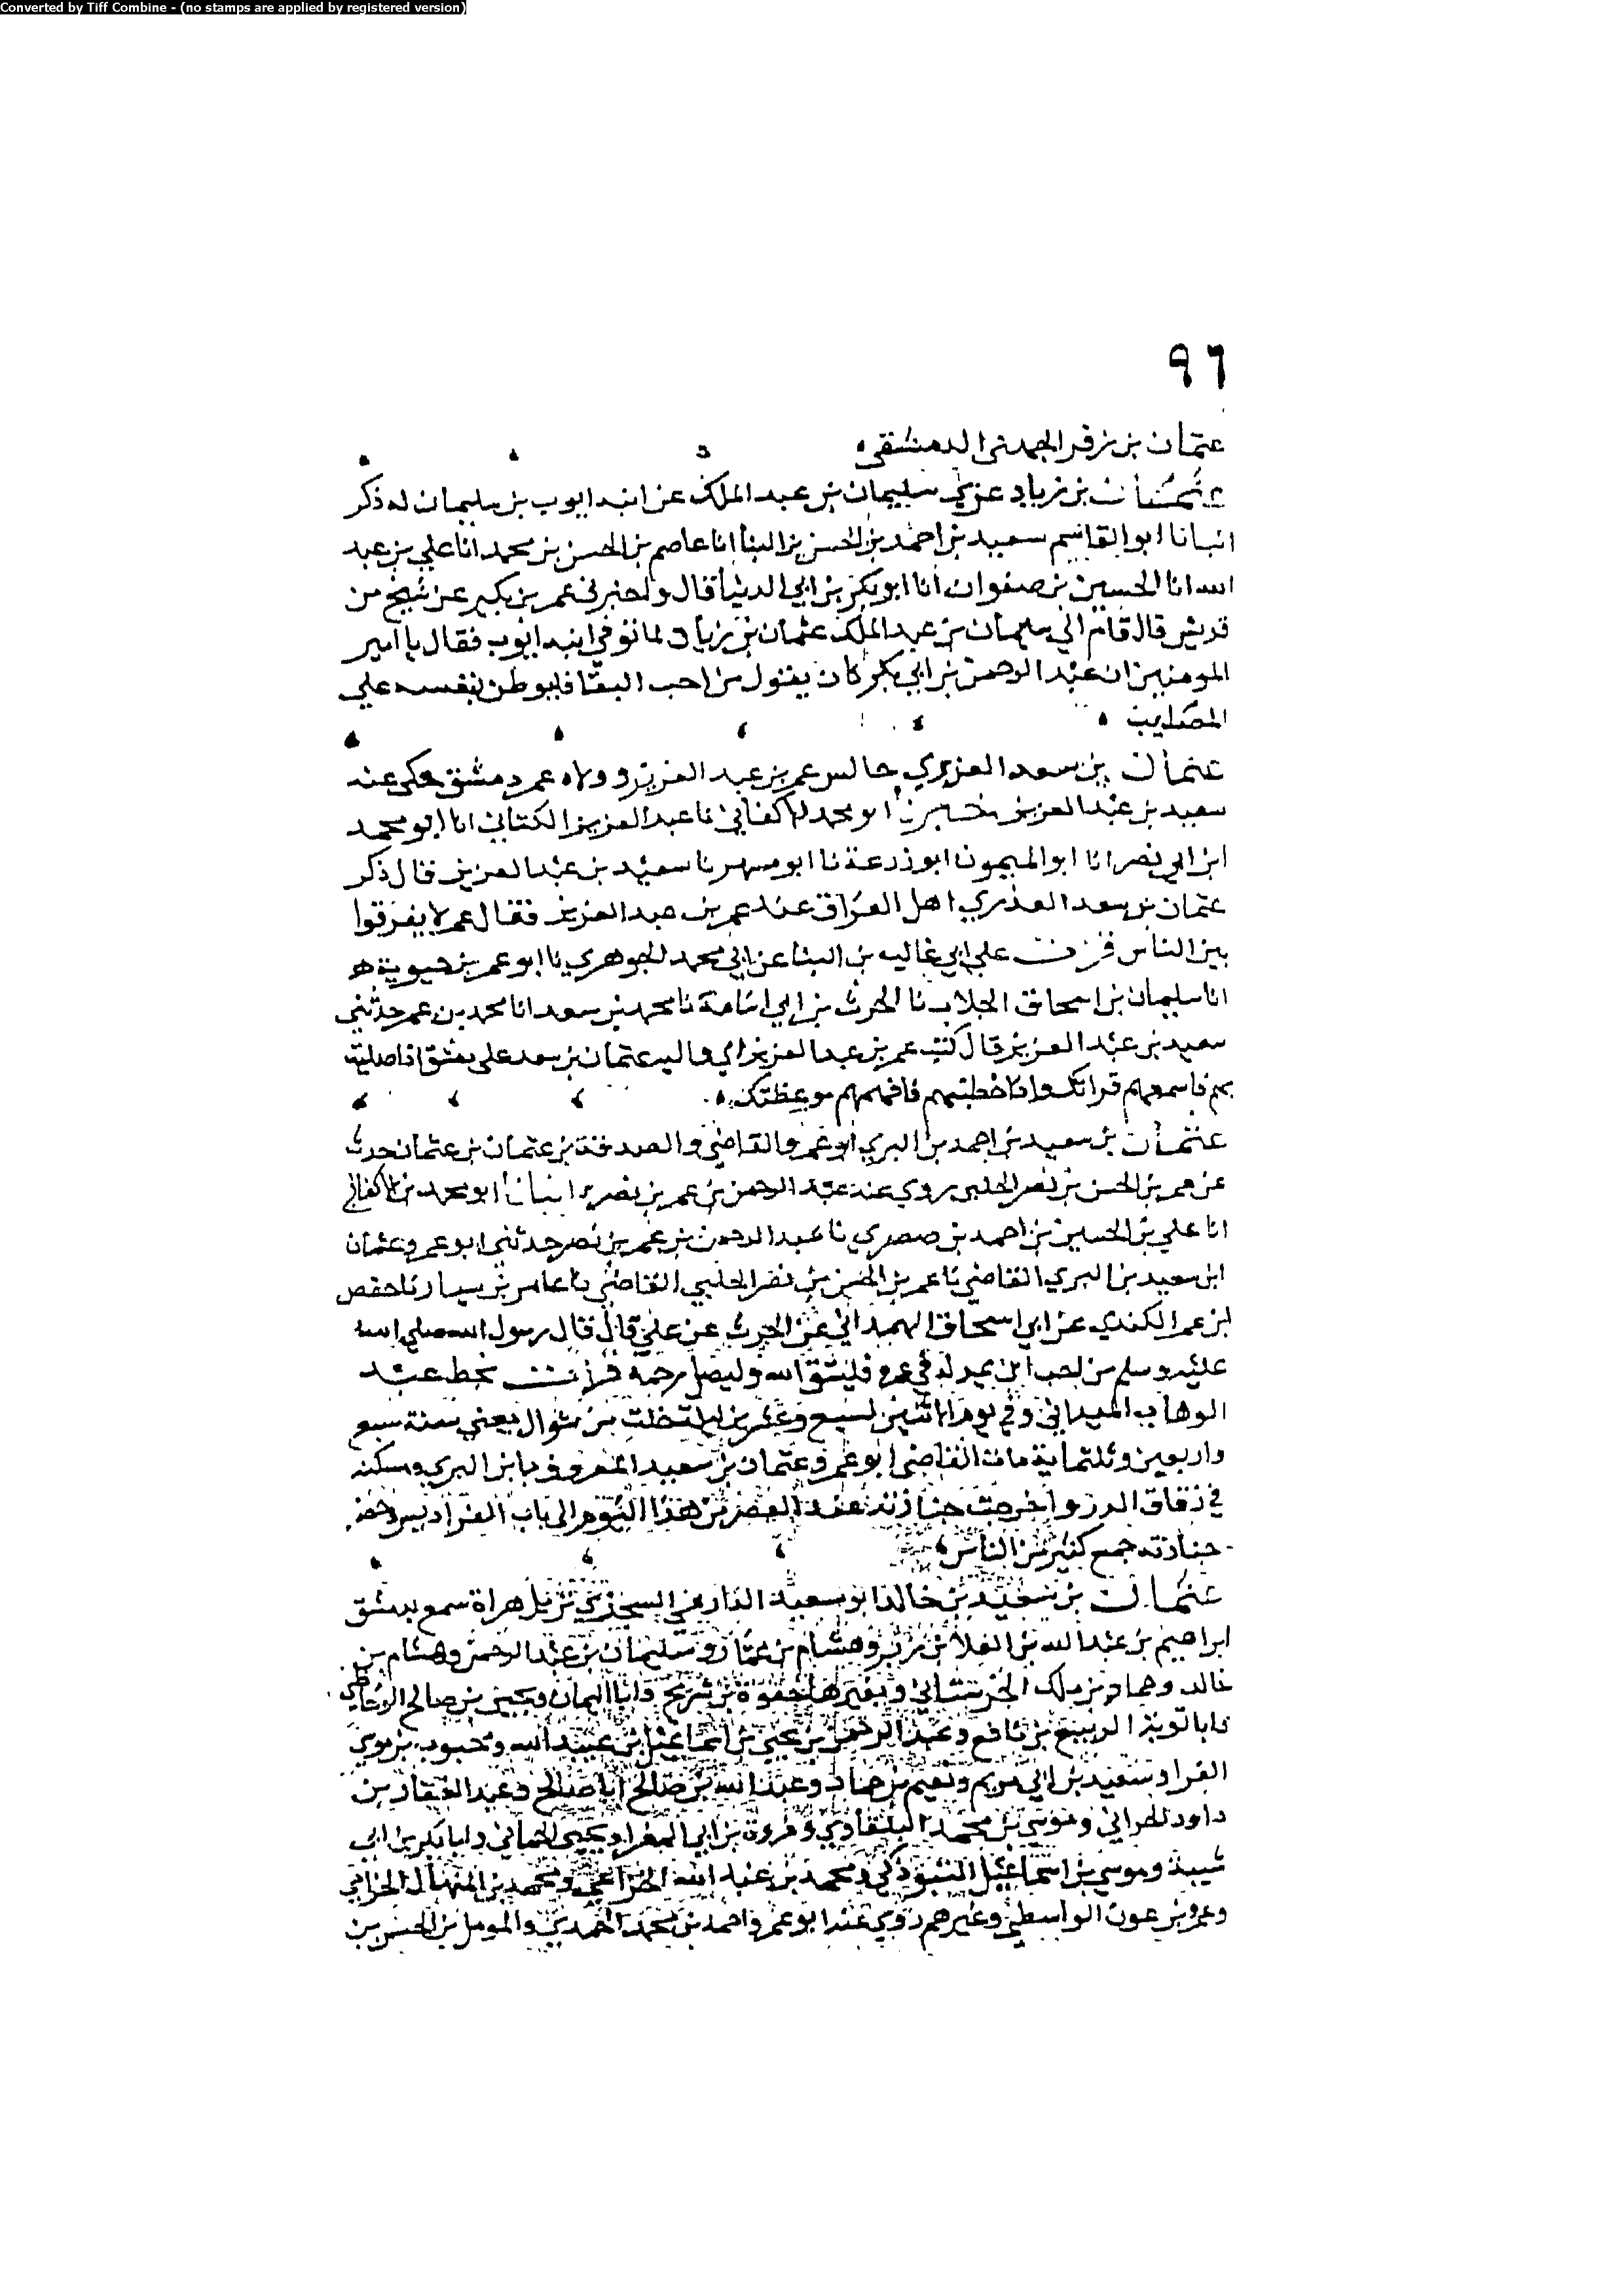 Converted by Tiff Combine - (no stamps are applied by registered version)
٩٦
عثمان بن زفر الجهني الدمشقي
عثمان بن زياد عزي سليمان بن عبد الملك عن ابنه ايوب بن سليمان له ذكر
انبانا ابو القاسم سعيد بن احمد بن الحسن بن البنا انا عاصم بن الحسن بن محمد انا علي بن عبد
الله انا الحسين بن صفوان انا ابو بكر بن ابي الدنيا قال واخبرني عمر بن بكير عن شيخ من
قريش قال قام الي سليمان بن عبد الملك عثمان بن زياد لما توفي ابنه ايوب فقال يا امير
المومنين ان عبد الرحمن بن ابي بكر كان يقول من احب البقا فليوطن نفسه علي
المصايب
عثمان بن سعد العزيري جالس عمر بن عبد العزيز وولاه عمر دمشق حكى عنه
سعيد بن عبد العزيز ابو محمد الاكفاني نا عبد العزيز الكتاني انا ابو محمد
ابن ابي نصر انا ابو الميمون ابو زرعة نا ابو مسهر نا سعيد بن عبد العزيز قال ذكر
عثمان بن سعد العذري اهل العراق عند عمر بن عبد العزيز فقال عمر لا يفرقوا
بين الناس قرات علي ابي غالب بن البنا عن ابي محمد الجوهري نا ابو عمر بن حيوية
انا سليمان بن اسحاق الجلاب نا الحرث بن ابي اسامة نا محمد بن سعد انا محمد بن عمر حدثني
سعيد بن عبد العزيز قال كتب عمر بن عبد العزيز الي واليه عثمان بن سعد علي دمشق اذا صليت
بهم فاسمعهم قراتك واذا خطبتهم فافهمهم موعظتك
عثمان بن سعيد بن احمد بن البري ابو عمرو القاضي بن عثمان بن عثمان حدث
عن عمر بن الحسن بن نصر الحلبي روي عنه عبد الرحمن بن عمر بن نصر انبانا ابو محمد بن الاكفاني
انا علي بن الحسين بن احمد بن صصري نا عبد الرحمن بن عمر بن نصر حدثني ابو عمرو عثمان
ابن سعيد بن البري القاضي نا عمر بن الحسن بن نصر الحلبي القاضي نا عامر بن سيار نا حفص
ابن عمر الكندي عن ابي اسحاق الهمداني عن الحرث عن علي قال قال رسول الله صلي الله
عليه وسلم من احب ان يمد له في عمره فليتق الله وليصل رحمه قرات بخط عبد
الوهاب الميداني وفي يوم الاثنين لسبع وعشرين ليلة خلت من شوال يعني سنة سبع
واربعين وثلثماية مات القاضي ابو عمرو عثمان بن سعيد المعروف بابن البري ومسكنه
في زقاق الدرز واخرجت جنازته عند العصر من هذا اليوم الي باب الفراديس وحضر
جنازته جمع كثير من الناس
عثمان بن سعيد بن خالد ابو سعيد الدارمي السجزي نزيل هراة سمع بدمشق
ابراهيم بن عبد الله بن العلا بن زبر وهشام بن عمار وسليمان بن عبد الرحمن وهشام بن
خالد وحماد بن ملك الحرستاني وبغيرها حيوة بن شريح وابا اليمان ويحيى بن صالح الوحاظي
وابا توبة الربيع بن نافع وعبد الرحمن بن يحيى بن اسماعيل بن عبيد الله ومحبوب بن موسي
الفرا وسعيد بن ابي مريم ونعيم بن حماد وعبد الله بن صالح ابا صالح وعبد الغفار بن
داود الحراني وموسي بن محمد البلقاوي وفروة بن ابي المغرا ويحيى الحماني وابا بكر بن ابي
شيبة وموسي بن اسماعيل التبوذكي ومحمد بن عبد الله الخزاعي ومحمد بن المنهال
وعمرو بن عون الواسطي وغيرهم روي عنه ابو عمرو احمد بن محمد والمومل بن الحسن بن